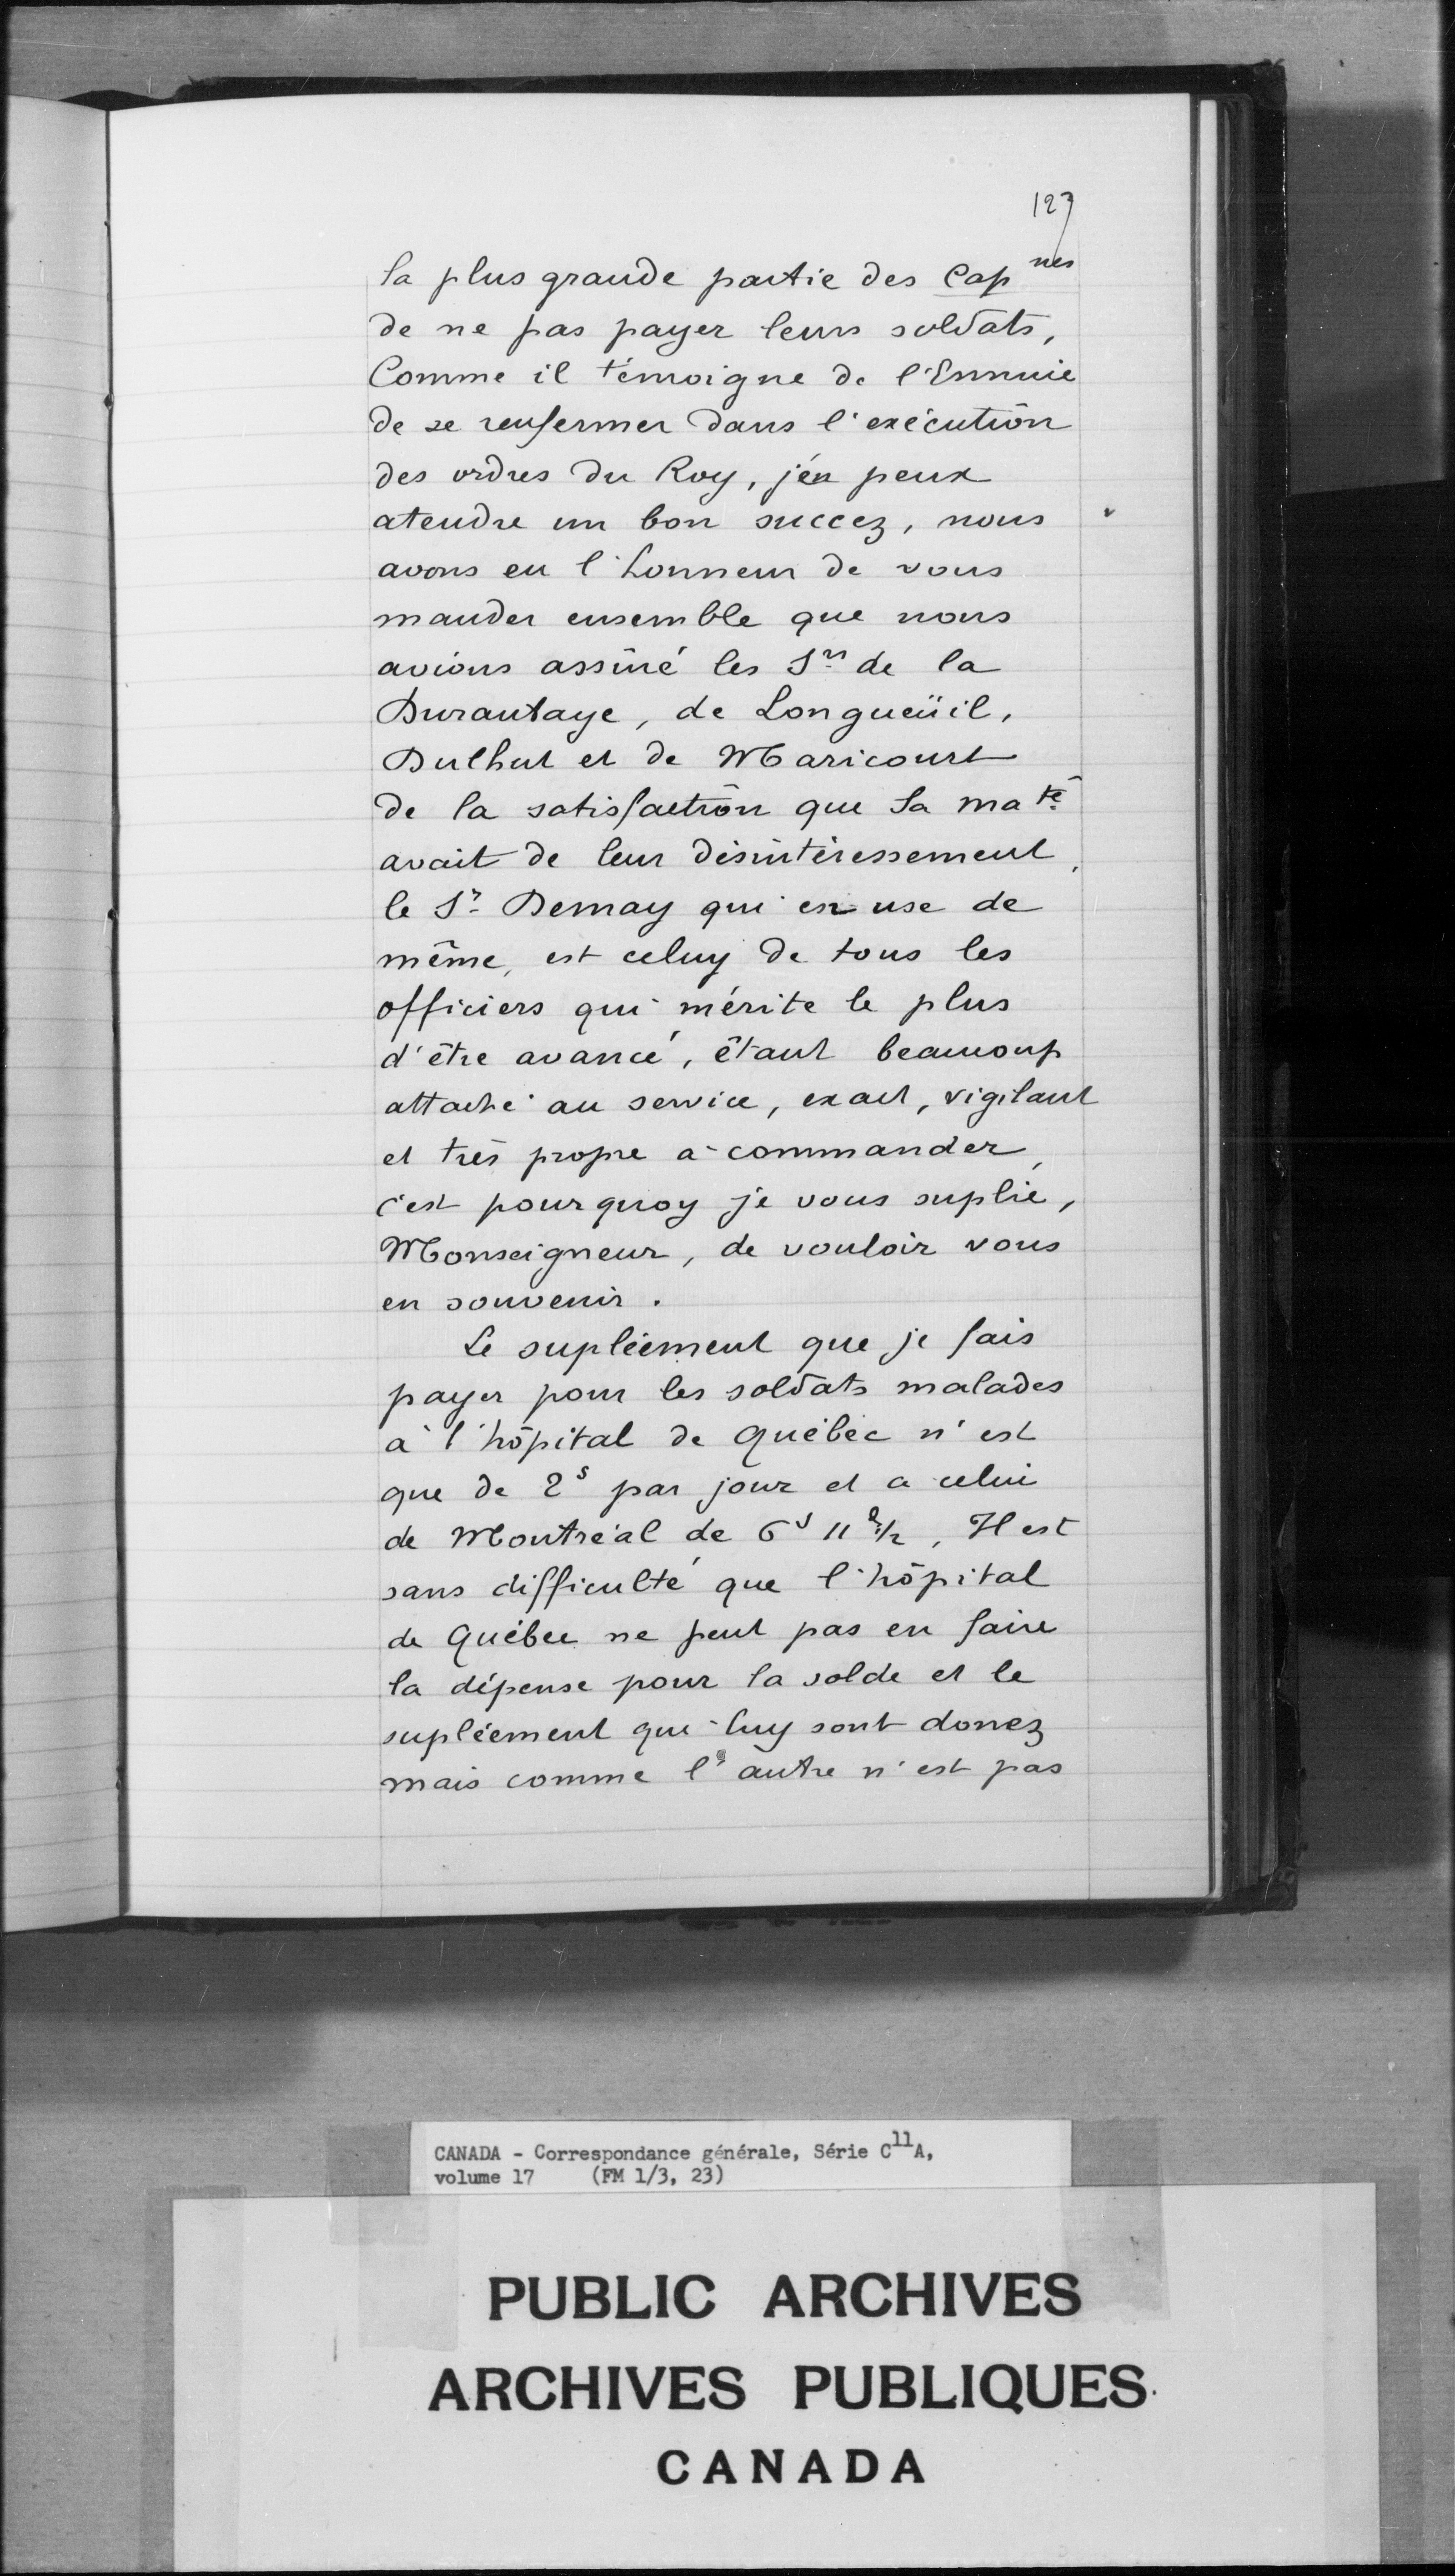 127
la plus grande partie des Cap nes
de ne pas payer leurs soldats,
Comme il témoigne de l'Ennuie
de se renfermer dans l'exécution
des ordres du Roy, j'en peux
atendre un bon succez, nous
avons eu l'honneur de vous
mander ensemble que nous
avions assuré les Srs de la
Durantaye, de Longueüil,
Dulhut et de Maricourt
de la satisfaction que Sa ma té
avait de leur désintéressement,
le Sr Demay qui en use de
même, est celuy de tous les
officiers qui mérite le plus
d'être avancé, étant beaucoup
attaché au service, exact, vigilant
et très propre a commander,
c'est pourquoy je vous suplie,
Monseigneur, de vouloir vous
en souvenir.
Le supléement que je fais
payer pour les soldats malades
à l'hôpital de Québec n'est
que de 2s par jour et a celui
de Montréal de 6s 11 d 1/2, Il est
sans difficulté que l'hôpital
de Québec ne peut pas en faire
la dépense pour la solde et le
supléement qui luy sont donez
mais comme l'autre n'est pas
CANADA - Correspondance générale, Série C11A,
volume 17 (FM 1/3, 23)
PUBLIC ARCHIVES
ARCHIVES PUBLIQUES
CANADA